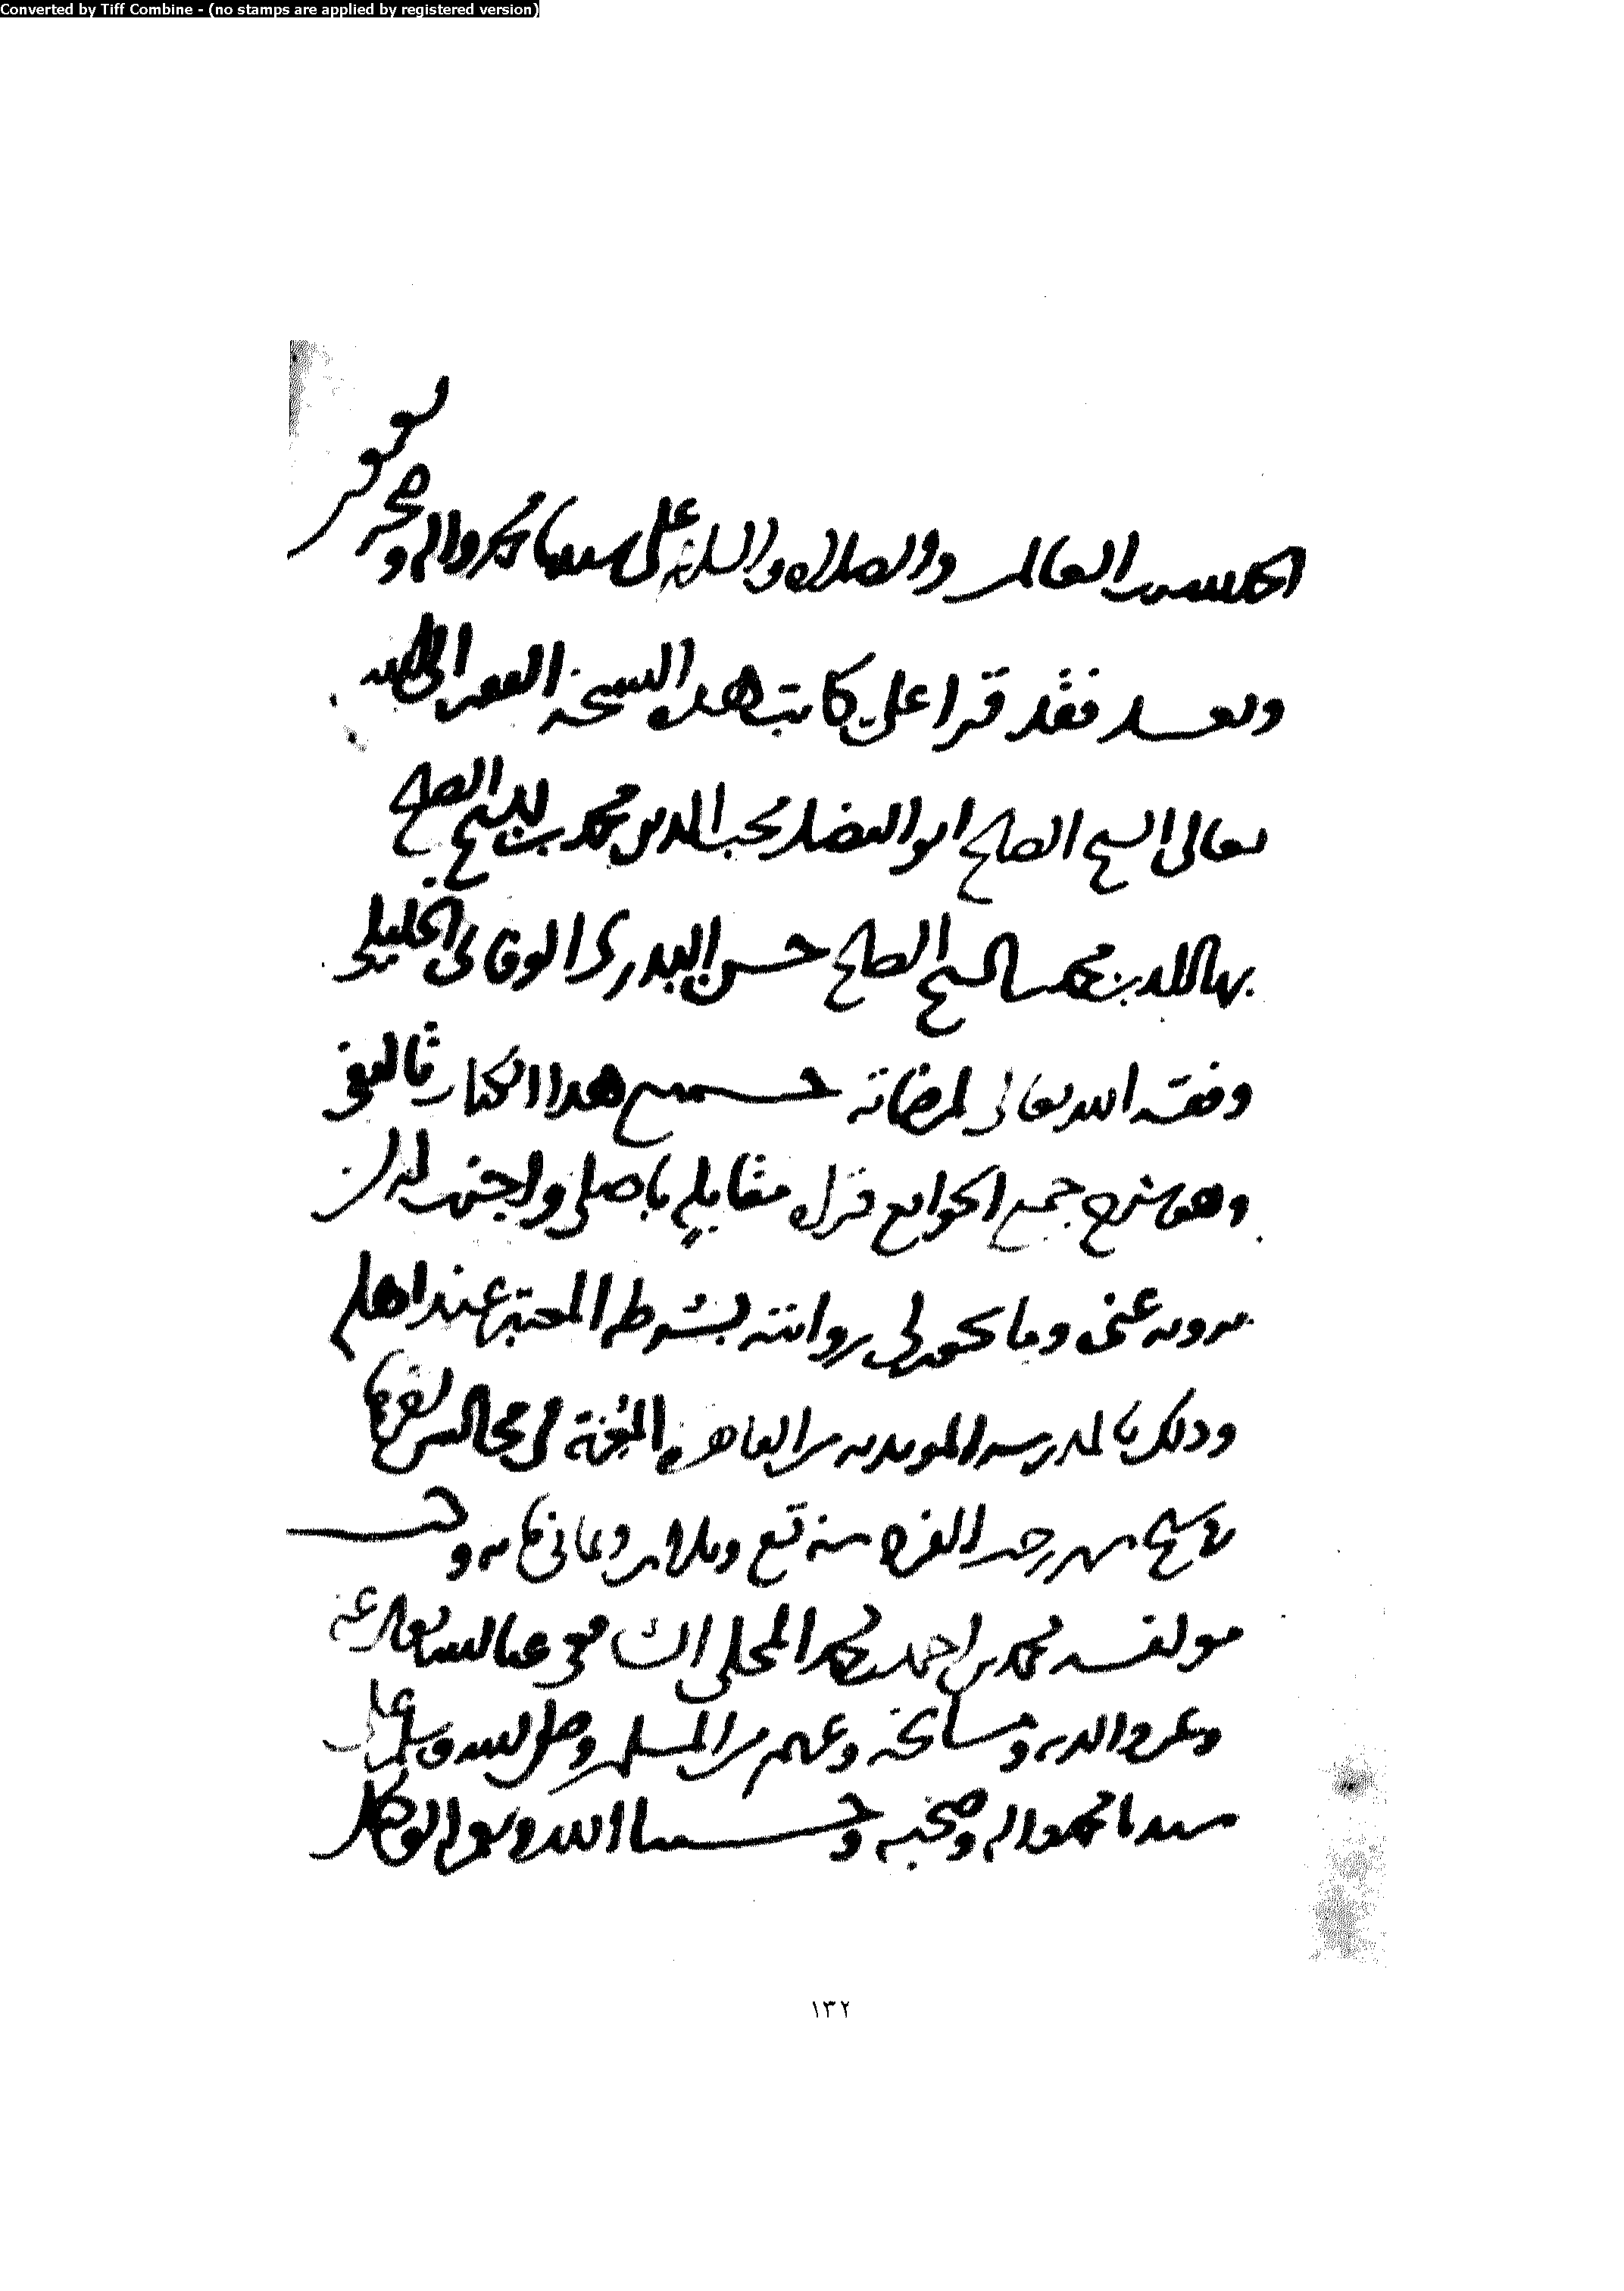 Converted by Tiff Combine - (no stamps are applied by registered version)
الحمد لله رب العالمين والصلاة والسلام على سيدنا محمد واله وصحبه
وبعد فقد قرا علي كاتب هذه النسخة الفقير الى الله
تعالى الشيخ الصالح ابو الفضل محب الدين محمد بن الشيخ الصالح
بها الدين محمد بن الشيخ الصالح حسن البدري الوفائي الخليلي
وفقه الله تعالى لمرضاته جميع هذا الكتاب تاليفي
وهو شرح جمع الجوامع قراة مقابلة باصلي واجزت له ان
يرويه عني وما يجوز لي روايته بشرطه المعتبر عند اهله
وذلك بالمدرسة المويدية من القاهرة في مجالس اخرها
شهر رجب الفرد سنة تسع وثلاثين وثمانمائة وكتب
مولفه محمد بن احمد بن محمد المحلي الشافعي عفا الله تعالى عنه
وعن والديه ومشايخه وعن المسلمين وصلى الله وسلم على
سيدنا محمد واله وصحبه وحسبنا الله ونعم الوكيل
١٣٢